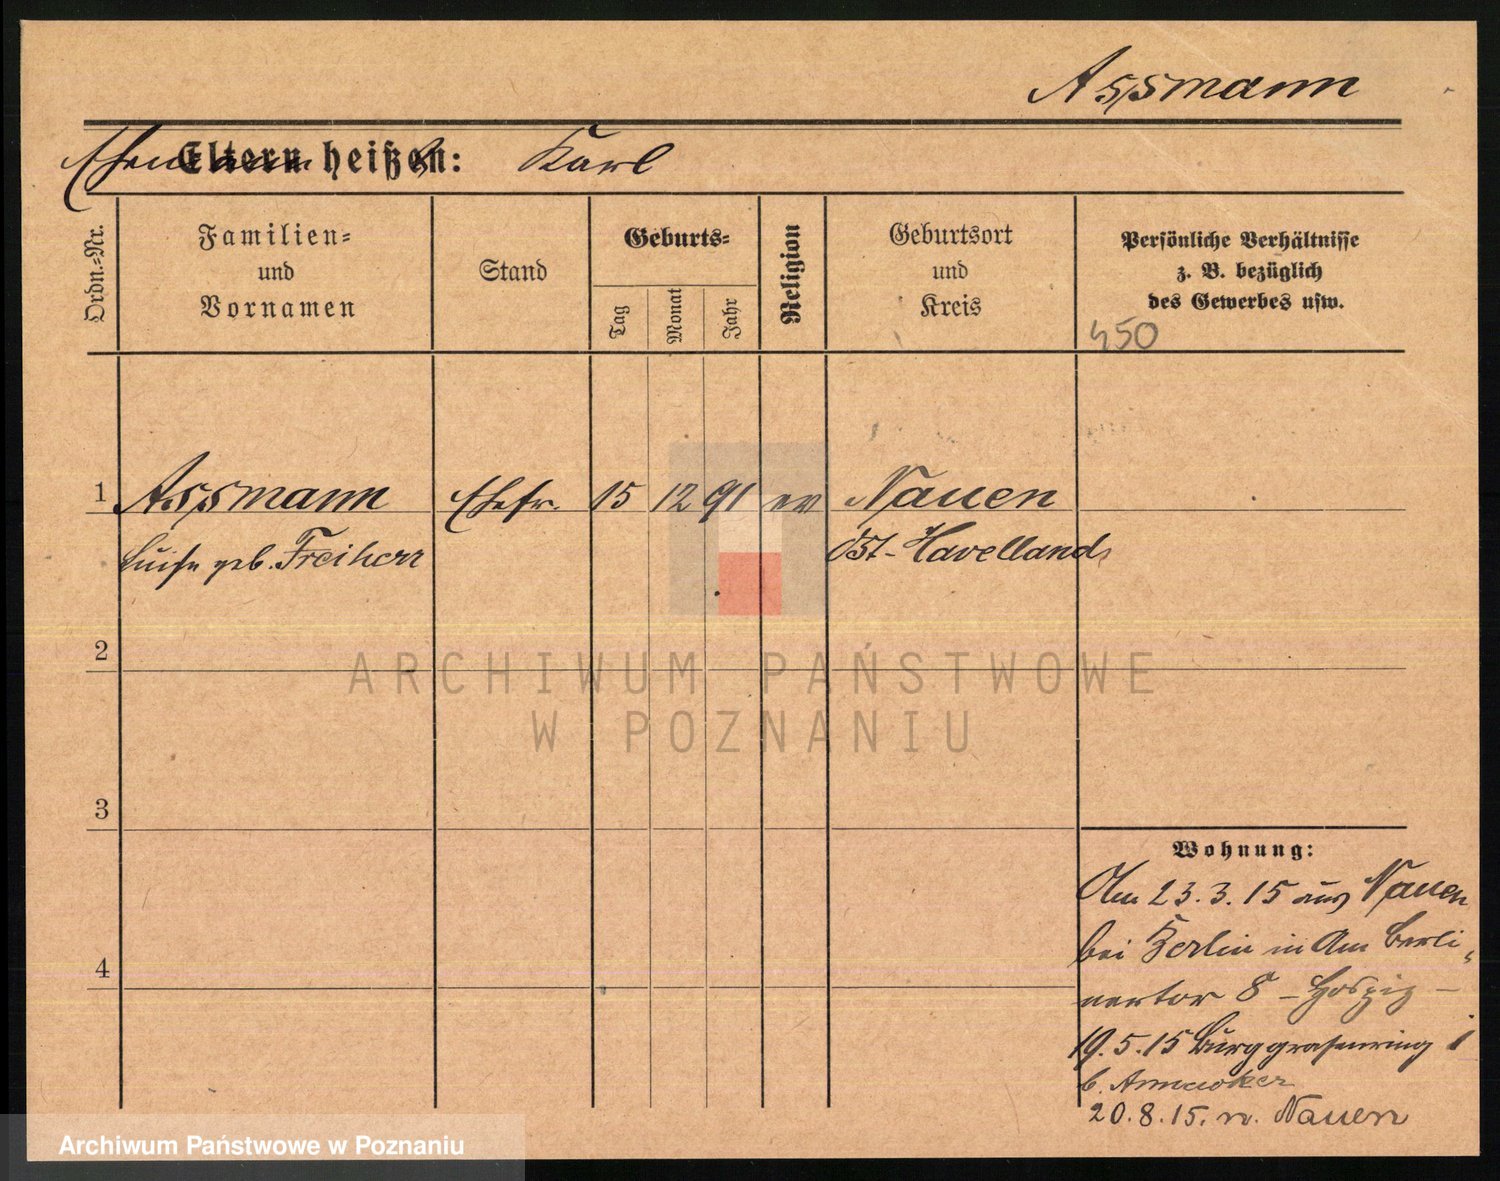 Assmann
Ehemann
Eltern heißen: Karl
Ordn.-Nr.
Familien-
und
Vornamen
Stand
Geburts-
Tag
Monat
Jahr
Religion
Geburtsort
und
Kreis
Persönliche Verhältnisse
z. B. bezüglich
des Gewerbes usw.
450
1 Assmann Ehefr. 15 12 91 ev Nauen
Luise geb. Freiherr Ost-Havelland
2
ARCHIWUM PAŃSTWOWE
W POZNANIU
3
Wohnung:
Am 23.3.15 aus Nauen
bei Berlin in Am Berli-
4
nertor 8 – Hospiz –
19.5.15 Burggrafenring 1
b.
20.8.15. n. Nauen
Archiwum Państwowe w Poznaniu